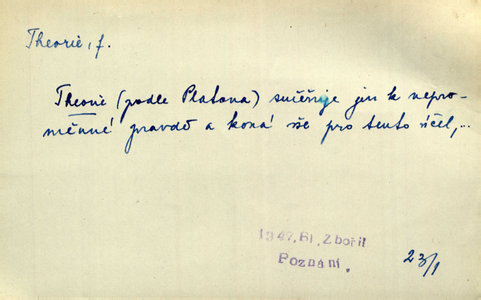 Theorie, f.
Theorie (podle Platona) směřuje jen k nepro-
měnné pravdě a koná vše pro tento účel,..
1947, Bl. Zbořil
Poznání.
23/1